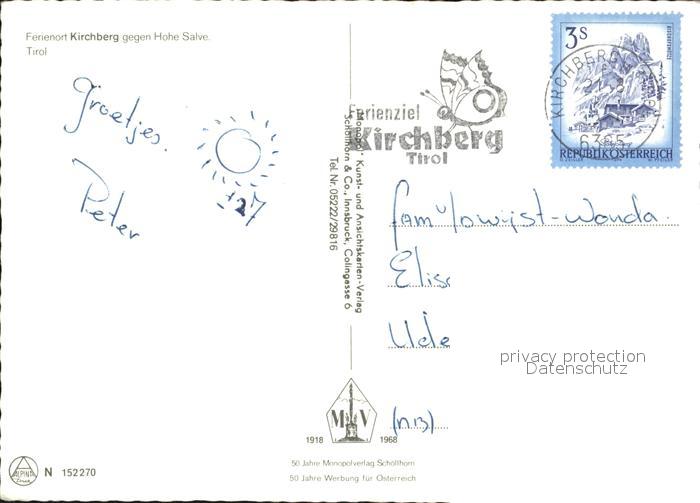 Ferienort Kirchberg gegen Hohe Salve.
Tirol
Groetjes.
Peter
+27
Monopol Kunst- und Ansichtskarten-Verlag
Schöllhorn & Co., Innsbruck, Colingasse 6
Tel. Nr. 05222/29816
Ferienziel
Kirchberg
Tirol
3 S
KIRCHBERG
6365
REPUBLIK ÖSTERREICH
Fam.
Elis
Ude
privacy protection
Datenschutz
(NB)
M V
1918 1968
50 Jahre Monopolverlag Schöllhorn
50 Jahre Werbung für Österreich
ALPINA
N 152270